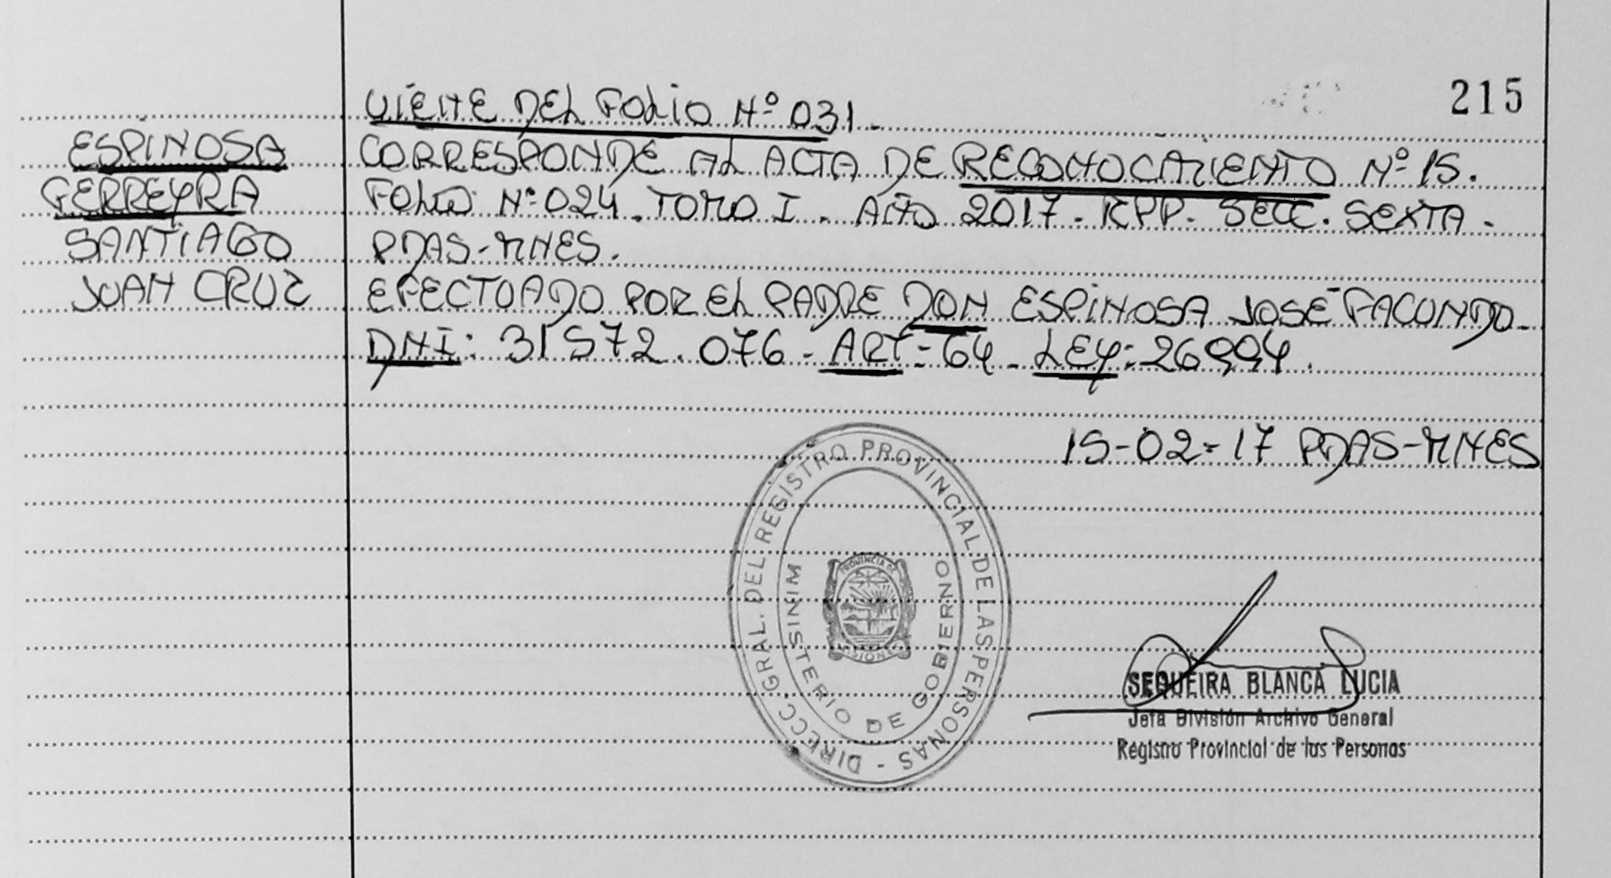 215
VIENE DEL FOLIO Nº 031.
ESPINOSA
FERREYRA
SANTIAGO
JUAN CRUZ
CORRESPONDE AL ACTA DE RECONOCIMIENTO Nº 15.
FOLIO Nº 024. TOMO I. AÑO 2017. RPP. SECC. SEXTA.
PDAS-MNES.
EFECTUADO POR EL PADRE DON ESPINOSA JOSÉ FACUNDO.
DNI: 31572.076. ART=64. LEY: 26994.
15-02-17 PDAS-MNES
DIRECC. GRAL. DEL REGISTRO PROVINCIAL DE LAS PERSONAS -
MINISTERIO DE GOBIERNO
PROVINCIA DE
MISIONES
SEQUEIRA BLANCA LUCIA
Jefa División Archivo General
Registro Provincial de las Personas